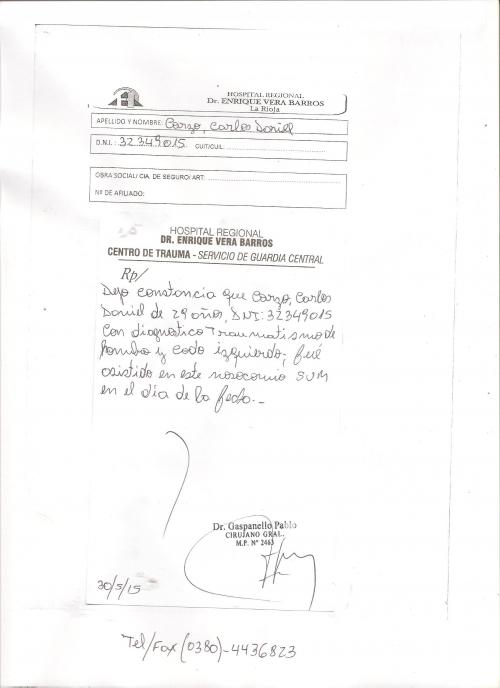 HOSPITAL REGIONAL
Dr. ENRIQUE VERA BARROS
La Rioja
APELLIDO Y NOMBRE: Carzo, Carlos Daniel
D.N.I.: 32349015 CUIT/CUIL:
OBRA SOCIAL/ CIA. DE SEGURO/ ART:
Nº DE AFILIADO:
HOSPITAL REGIONAL
DR. ENRIQUE VERA BARROS
CENTRO DE TRAUMA - SERVICIO DE GUARDIA CENTRAL
Rp/
Dejo constancia que Carzo, Carlos
Daniel de 29 años, DNI: 32349015
Con diagnostico Traumatismo de
hombro y codo izquierdo, fué
asistido en este nosocomio SUM
en el día de la fecha.-
Dr. Gaspanello Pablo
CIRUJANO GRAL.
M.P. Nº 2463
30/5/15
Tel/Fax (0380)-4436823